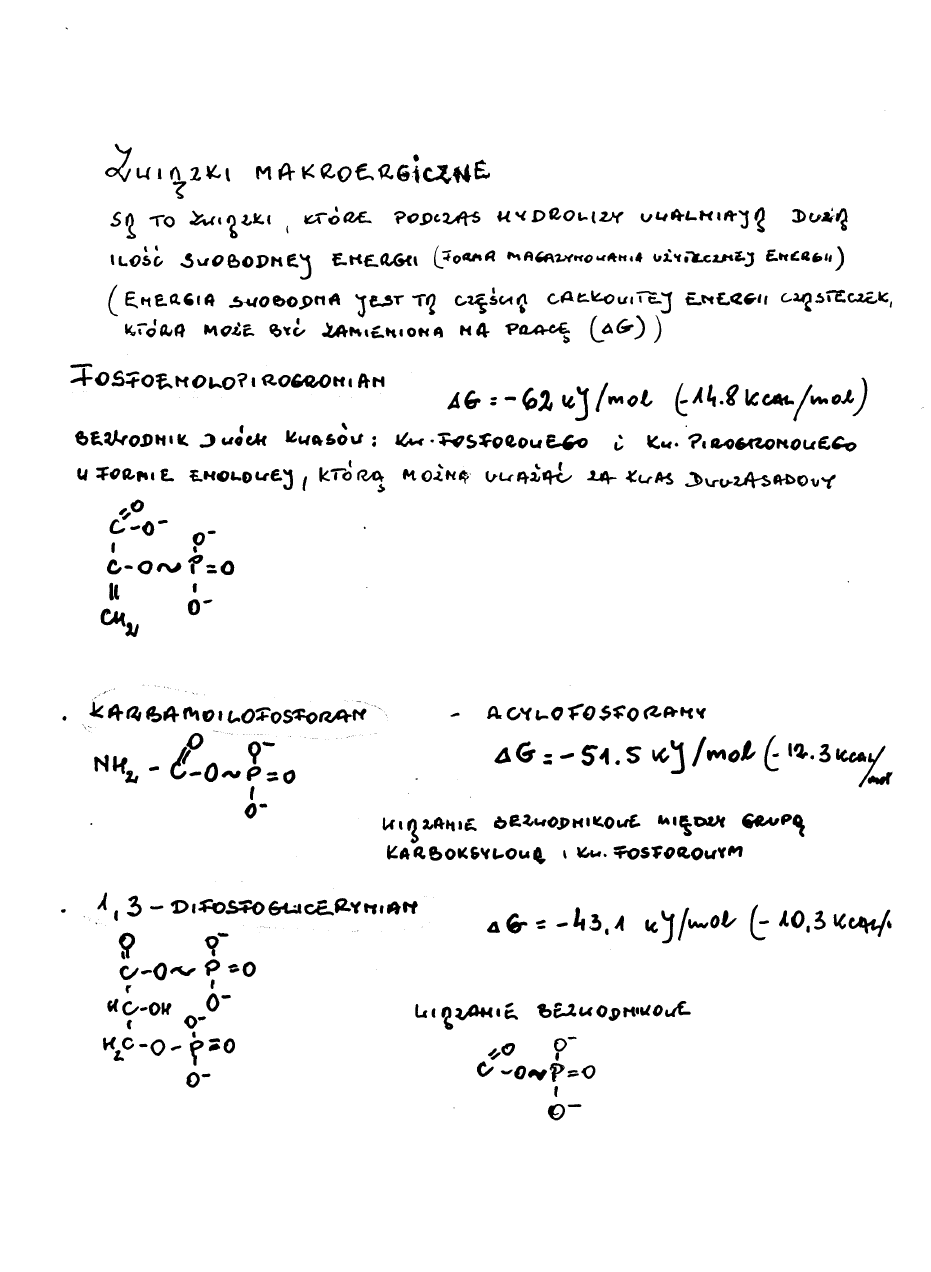 ZWIĄZKI MAKROERGICZNE
SĄ TO ZWIĄZKI, KTÓRE PODCZAS HYDROLIZY UWALNIAJĄ DUŻĄ
ILOŚĆ SWOBODNEJ ENERGII (FORMA MAGAZYNOWANIA UŻYTECZNEJ ENERGII)
(ENERGIA SWOBODNA JEST TĄ CZĘŚCIĄ CAŁKOWITEJ ENERGII CZĄSTECZEK,
KTÓRA MOŻE BYĆ ZAMIENIONA NA PRACĘ (ΔG))
FOSFOENOLOPIROGRONIAN
ΔG = -62 kJ/mol (-14.8 kcal/mol)
BEZWODNIK DWÓCH KWASÓW: KW. FOSFOROWEGO i KW. PIROGRONOWEGO
W FORMIE ENOLOWEJ, KTÓRĄ MOŻNA UWAŻAĆ ZA KWAS DWUZASADOWY
O
C-O⁻ O⁻
C-O~P=O
O⁻
CH₂
. KARBAMOILOFOSFORAN - ACYLOFOSFORANY
O O⁻ ΔG = -51.5 kJ/mol (-12.3 kcal/mol
NH₂ - C-O~P=O
O⁻
WIĄZANIE BEZWODNIKOWE MIĘDZY GRUPĄ
KARBOKSYLOWĄ i KW. FOSFOROWYM
. 1,3-DIFOSFOGLICERYNIAN ΔG = -43,1 kJ/mol (-10,3 kcal/.
O O⁻
C-O~P=O
HC-OH O⁻ WIĄZANIE BEZWODNIKOWE
O⁻
H₂C-O-P=O
O⁻
O O⁻
C-O~P=O
O⁻